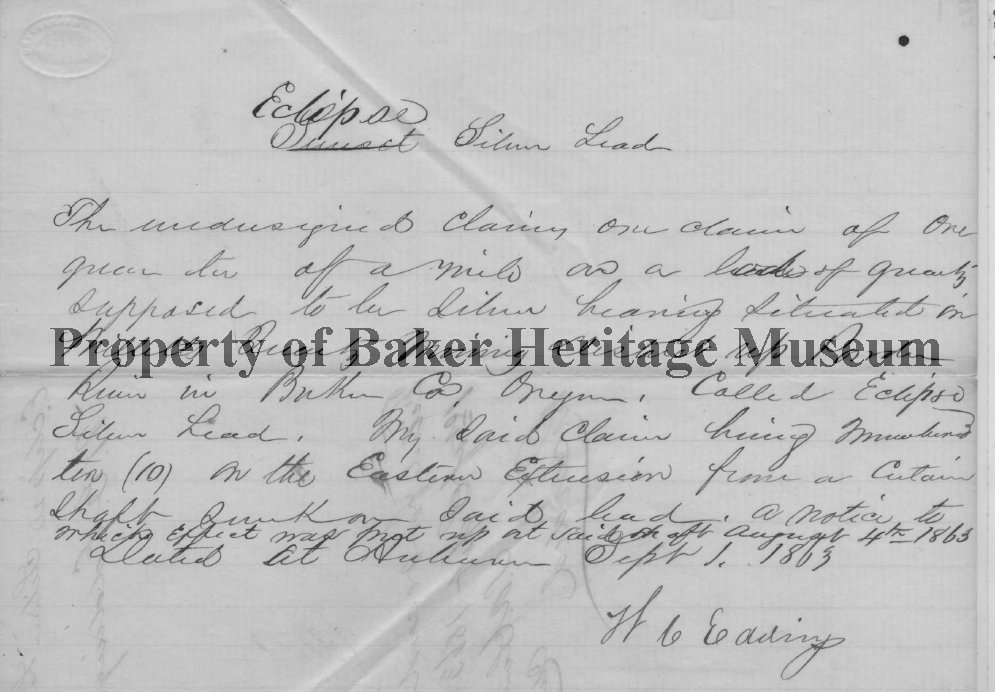 Eclipse
Sunset Silver Lead
The undersigned claims one claim of one
quarter of a mile on a lode of quartz
supposed to be silver bearing situated in
Property of Baker Heritage Museum
Mining District
River in Baker Co Oregon. Called Eclipse
Silver Lead. My said claim being numbered
ten (10) on the Eastern Extension from a certain
shaft sunk on said lead. a notice to
which effect was put up at said shaft August 4th 1863
Dated at Auburn Sept 1. 1863
W C Edwing